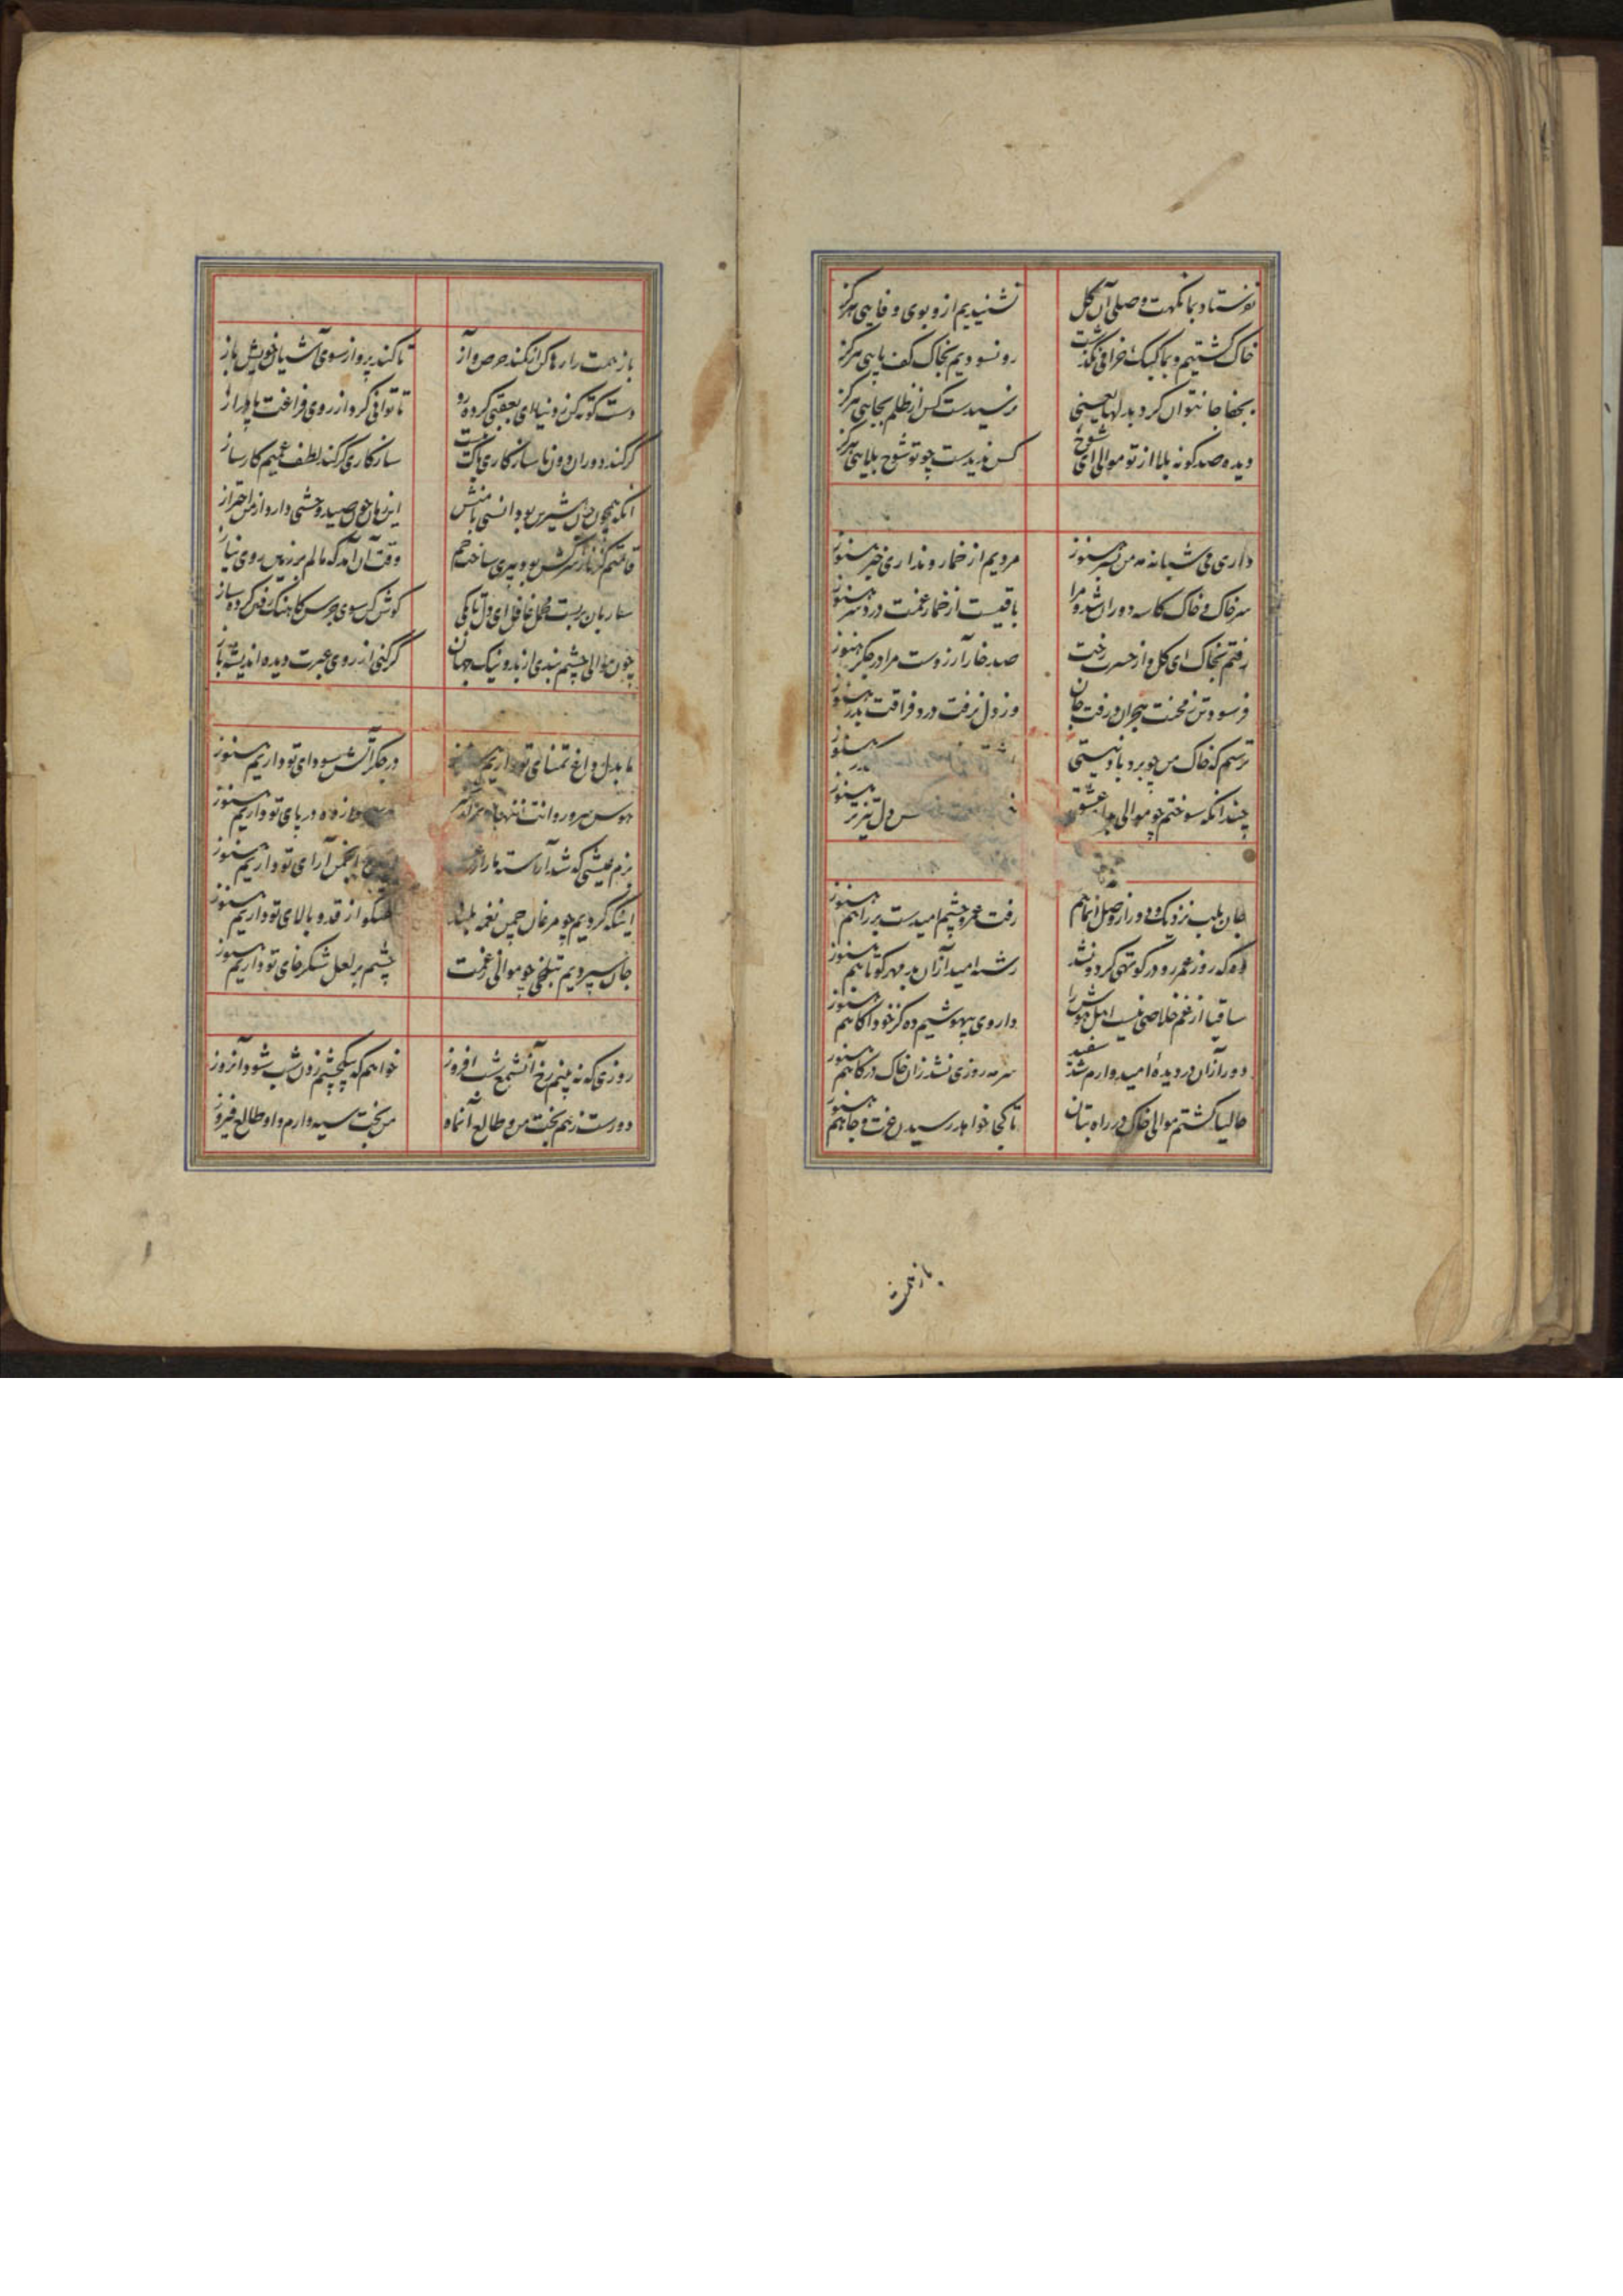 نفرستاد بما نکهت وصلی آن گل نشنیدیم ازو بوی وفایی هرگز
خاک گشتیم و بما کبک خرامی نگذشت رو نسودیم بخاک کف پایی هرگز
بجفا جا نتوان کرد بدلها یعنی نرسیدست کس از ظلم بجایی هرگز
دیده صد گونه بلا از تو موالی ای شوخ کس ندیدست چو تو شوخ بلایی هرگز
داری می شبانه مه من بسر هنوز مردیم از خمار و نداری خبر هنوز
سر خاک و خاک کاسه دوران شد و مرا باقیست از خمار غمت درد سر هنوز
رفتم بخاک ای گل و از حسرت رخت صد خار آرزوست مرا در جگر هنوز
فرسود تن ز محنت هجران و رفت جان وز دل نرفت درد فراقت بدر هنوز
ترسم که خاک من چو برد باد نیستی هنوز
چندانکه سوختم چو موالی عشق دل هنوز
جان بلب نزدیک و دور از وصل آنماهم هنوز رفت عمر و چشم امیدست بر راهم هنوز
آه که روز عمر رو در کوتهی کرد و نشد رشته امید از آن بدمهر کوتاهم هنوز
ساقیا از غم خلاصی نیست اهل هوش را داروی بیهوشیم ده کز خود آگاهم هنوز
دور از آن در دیده امیدوارم شد سفید سرمه روزی نشد زان خاک درگاهم هنوز
حالیا گشتم موالی خاک در راه بتان تا کجا خواهد رسیدن عزت و جاهم هنوز
باز همت
باز همت را رها کن از کمند حرص و آز تا کند پرواز سوی آشیان خویش باز
دست کوته کن ز دنیا ای بعقبی کرده رو تا توانی کرد از روی فراغت پا دراز
گر کند دوران دون ناسازگاری باک نیست سازگاری گر کند لطف عمیم کارساز
آنکه همچون جان شیرین بود انسی با منش این زمان چون صید وحشی دارد از من احتراز
قامتم کز ناز سرکش بود پیری ساخت خم وقت آن آمد که مالم بر زمین روی نیاز
ساربان بربست محمل غافل ای دل تا بکی گوش کن سوی جرس کاهنگ رفتن کرده ساز
چون موالی چشم بندی از بد و نیک جهان گر کنی از روی عبرت دیده اندیشه باز
ما بدل داغ تمنای تو داریم هنوز در جگر آتش سودای تو داریم هنوز
هوس سرو روانت در پای تو داریم هنوز
بزم عیشی که شد آراسته انجمن آرای تو داریم هنوز
اینکه گردیم چو مرغان چمن نغمه بلند از قد و بالای تو داریم هنوز
جان سپردیم بتلخی چو موالی ز غمت چشم بر لعل شکرخای تو داریم هنوز
روزی که نه بینم رخ آنشمع شب افروز خواهم که بیکچشم زدن شب شود آنروز
دورست ز هم بخت من و طالع آنماه من بخت سیه دارم و او طالع فیروز